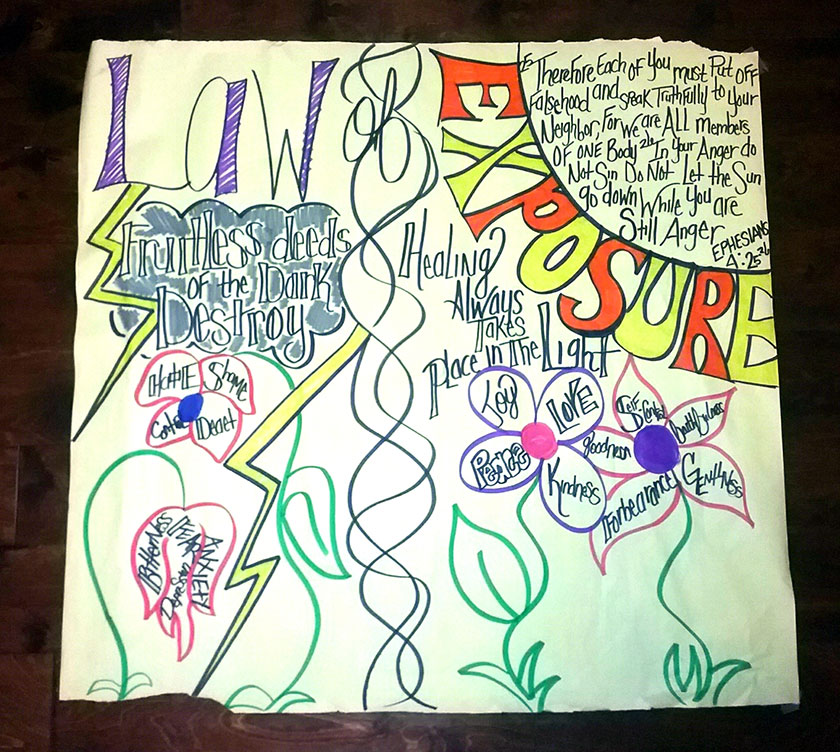 Law of EXPOSURE
25 Therefore Each of You must Put off
Falsehood and speak Truthfully to Your
Neighbor, For we are ALL members
of ONE Body 26 In Your Anger do
Not Sin Do Not Let the Sun
go down While You are
Still Anger
EPHESIANS
4:25-26
Fruitless deeds
of the Dark
Destroy
Healing
Always
Takes
Place in The Light
HATE Shame
Control Deceit
Bitterness
FEAR
Depression
ANXIETY
Joy LOVE
Peace
Kindness
Self-Control
Faithfulness
goodness
Gentlness
Forbearance